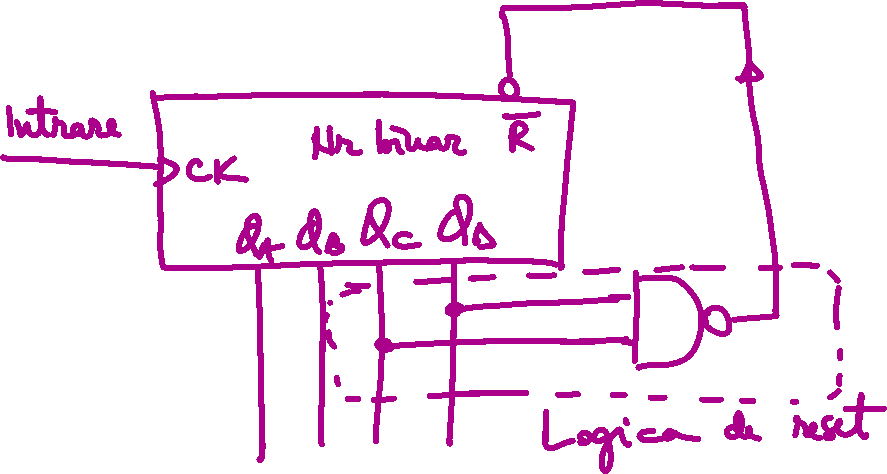 Intrare
R̅
Nr binar
CK
QA QB QC QD
Logica de reset